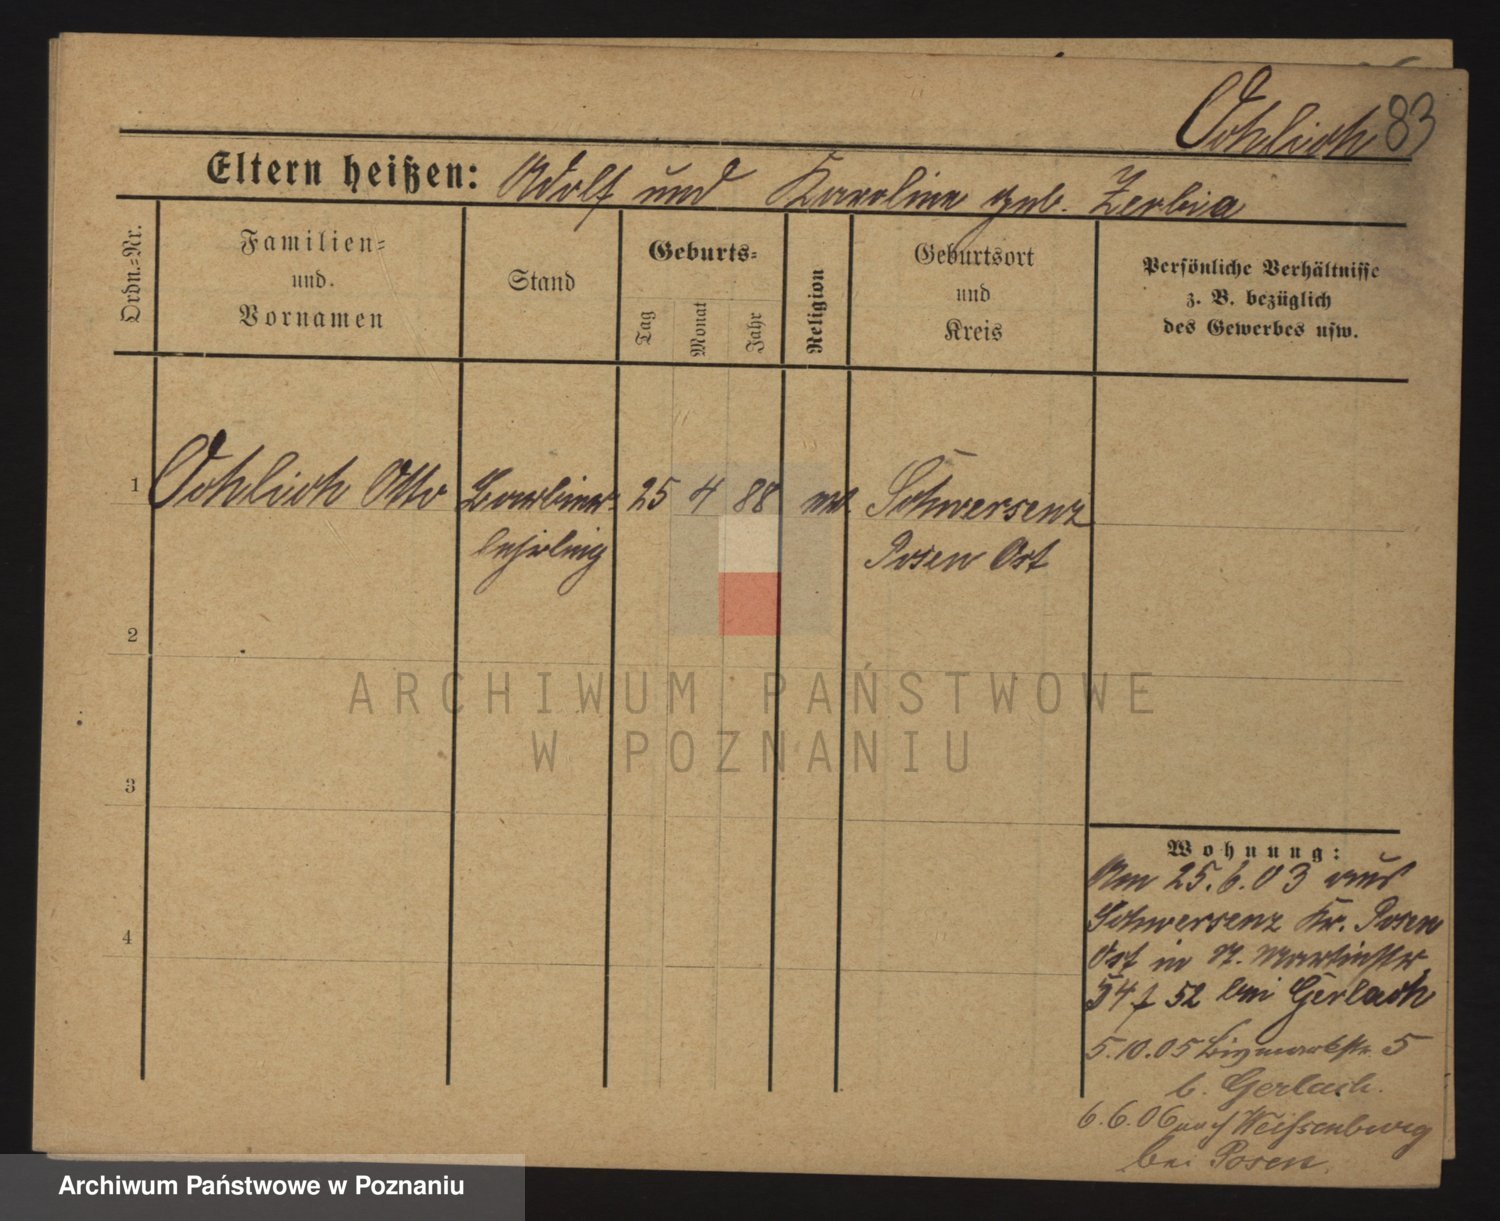 Oehlich 83
Eltern heißen: Adolf und Karoline geb. Zerbia
Ordn.=Nr.
Familien=
und
Vornamen
Stand
Geburts=
Tag
Monat
Jahr
Religion
Geburtsort
und
Kreis
Persönliche Verhältnisse
z. B. bezüglich
des Gewerbes usw.
1 Oehlich Otto 25 4 88 ev. Schwersenz
lehrling Posen Ost
2
3
4
Wohnung:
Am 25.6.03 aus
Schwersenz Kr. Posen
Ost in St. Martinstr.
52 bei Gerlach
5.10.05 Bismarckstr. 5
b. Gerlach.
6.6.06 nach Weissenburg
bei Posen.
ARCHIWUM PAŃSTWOWE
W POZNANIU
Archiwum Państwowe w Poznaniu